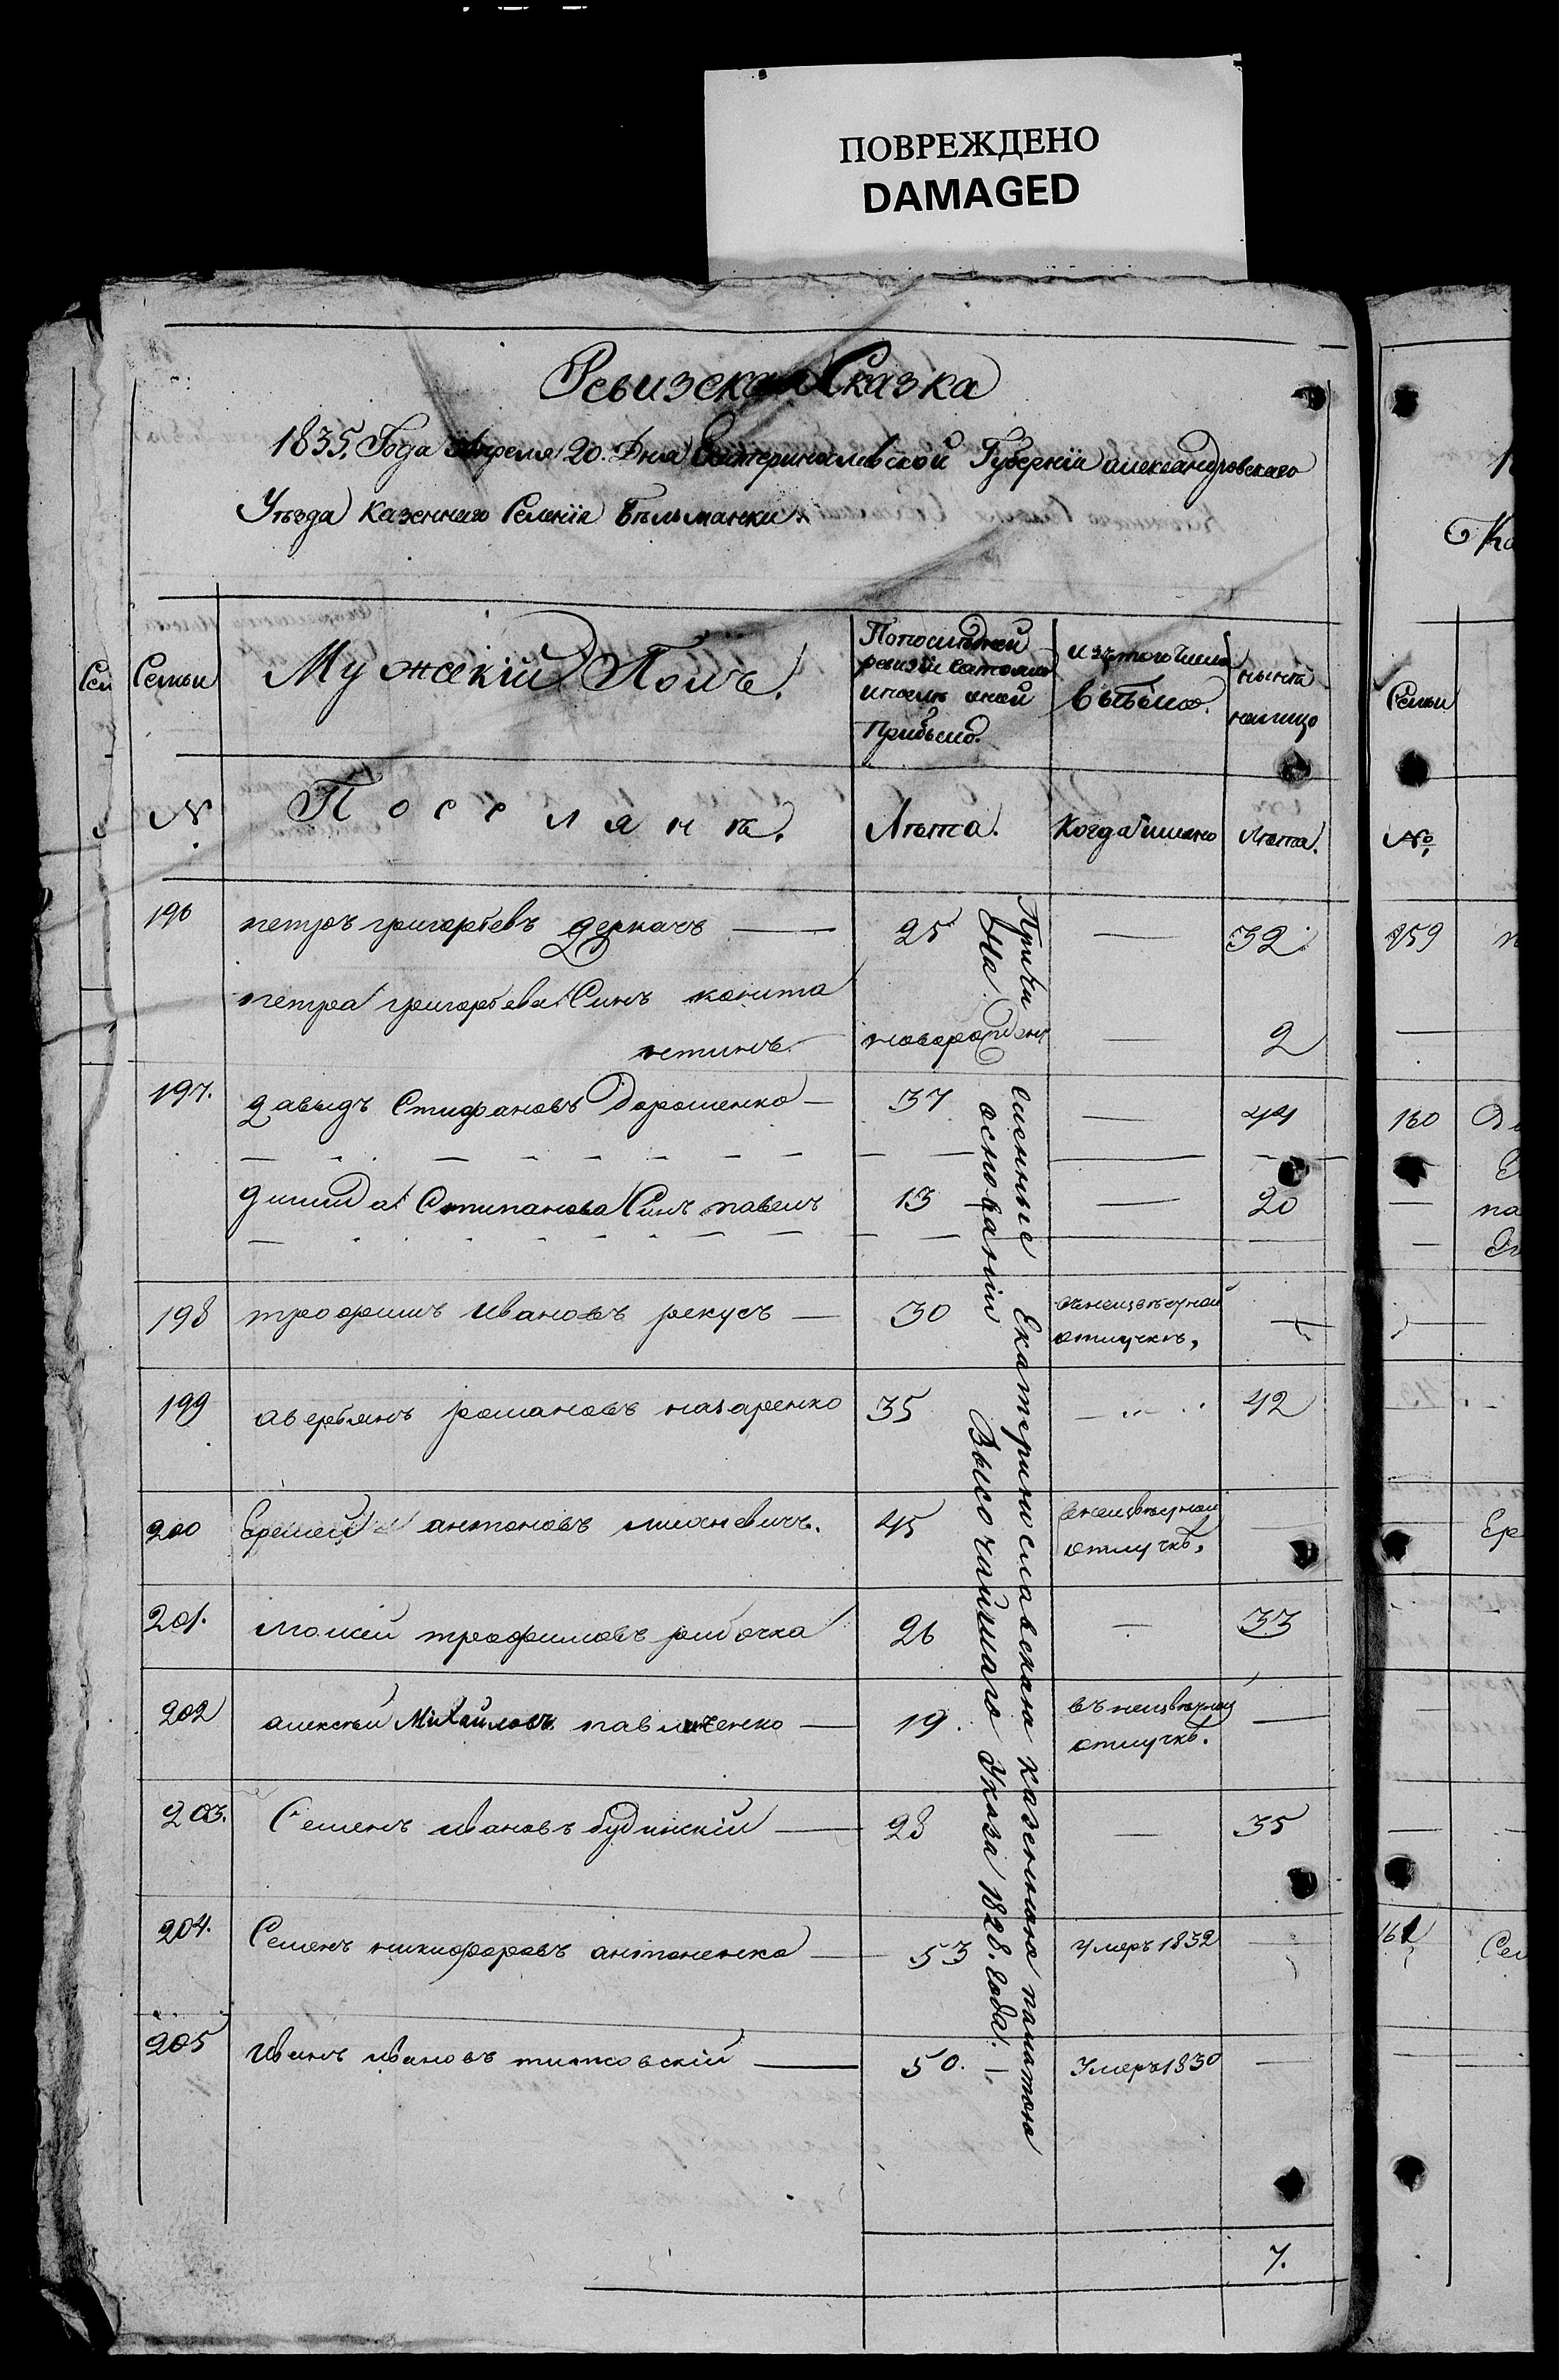 ПОВРЕЖДЕНО
DAMAGED
Ревизская Сказка
1835. Года Апреля 20. Дня Екатеринославской Губернiи александровскаго
Уѣзда казеннаго Селенiя Бѣльманки
Семьи
Мужескiй Полъ.
По последней
ревизiи состояло
и после оной
прибыло.
изъ того числа
выбыло.
нынѣ
налицо
№
Поселянѣ.
Лѣта.
Когда именно
Лѣта.
196 петръ григорьевъ деркачъ — 25 — 32
петра григорьева Синъ конста
нтинъ новорожден — 2
197. давыдъ Стифановъ Дорошенко — 37 — 44
Степанова Синъ павелъ 13 — 20
198 трофимъ Ивановъ рекусъ — 30 отлучкѣ, —
199 аверьянъ романовъ назаренко 35 — 42
200 Еремей антоновъ 45 внеизвѣстной
отлучкѣ,
201. моисей трофимовъ рибочка 26 — 33
202 алексѣй Михайловъ павличенко — 19. въ неизвѣстной
отлучкѣ. —
203. Семенъ ивановъ будинскiй — 28 — 35
204. Семенъ никифоровъ антоненко — 53 Умеръ 1832 —
205 Иванъ ивановъ — 50. Умеръ 1830 —
Причисленные Екатеринославскою казенною палатою
На основанiи Высочайшаго Указа 1828. года.
7.
Семьи
№
159
160
161
Ер
Сем